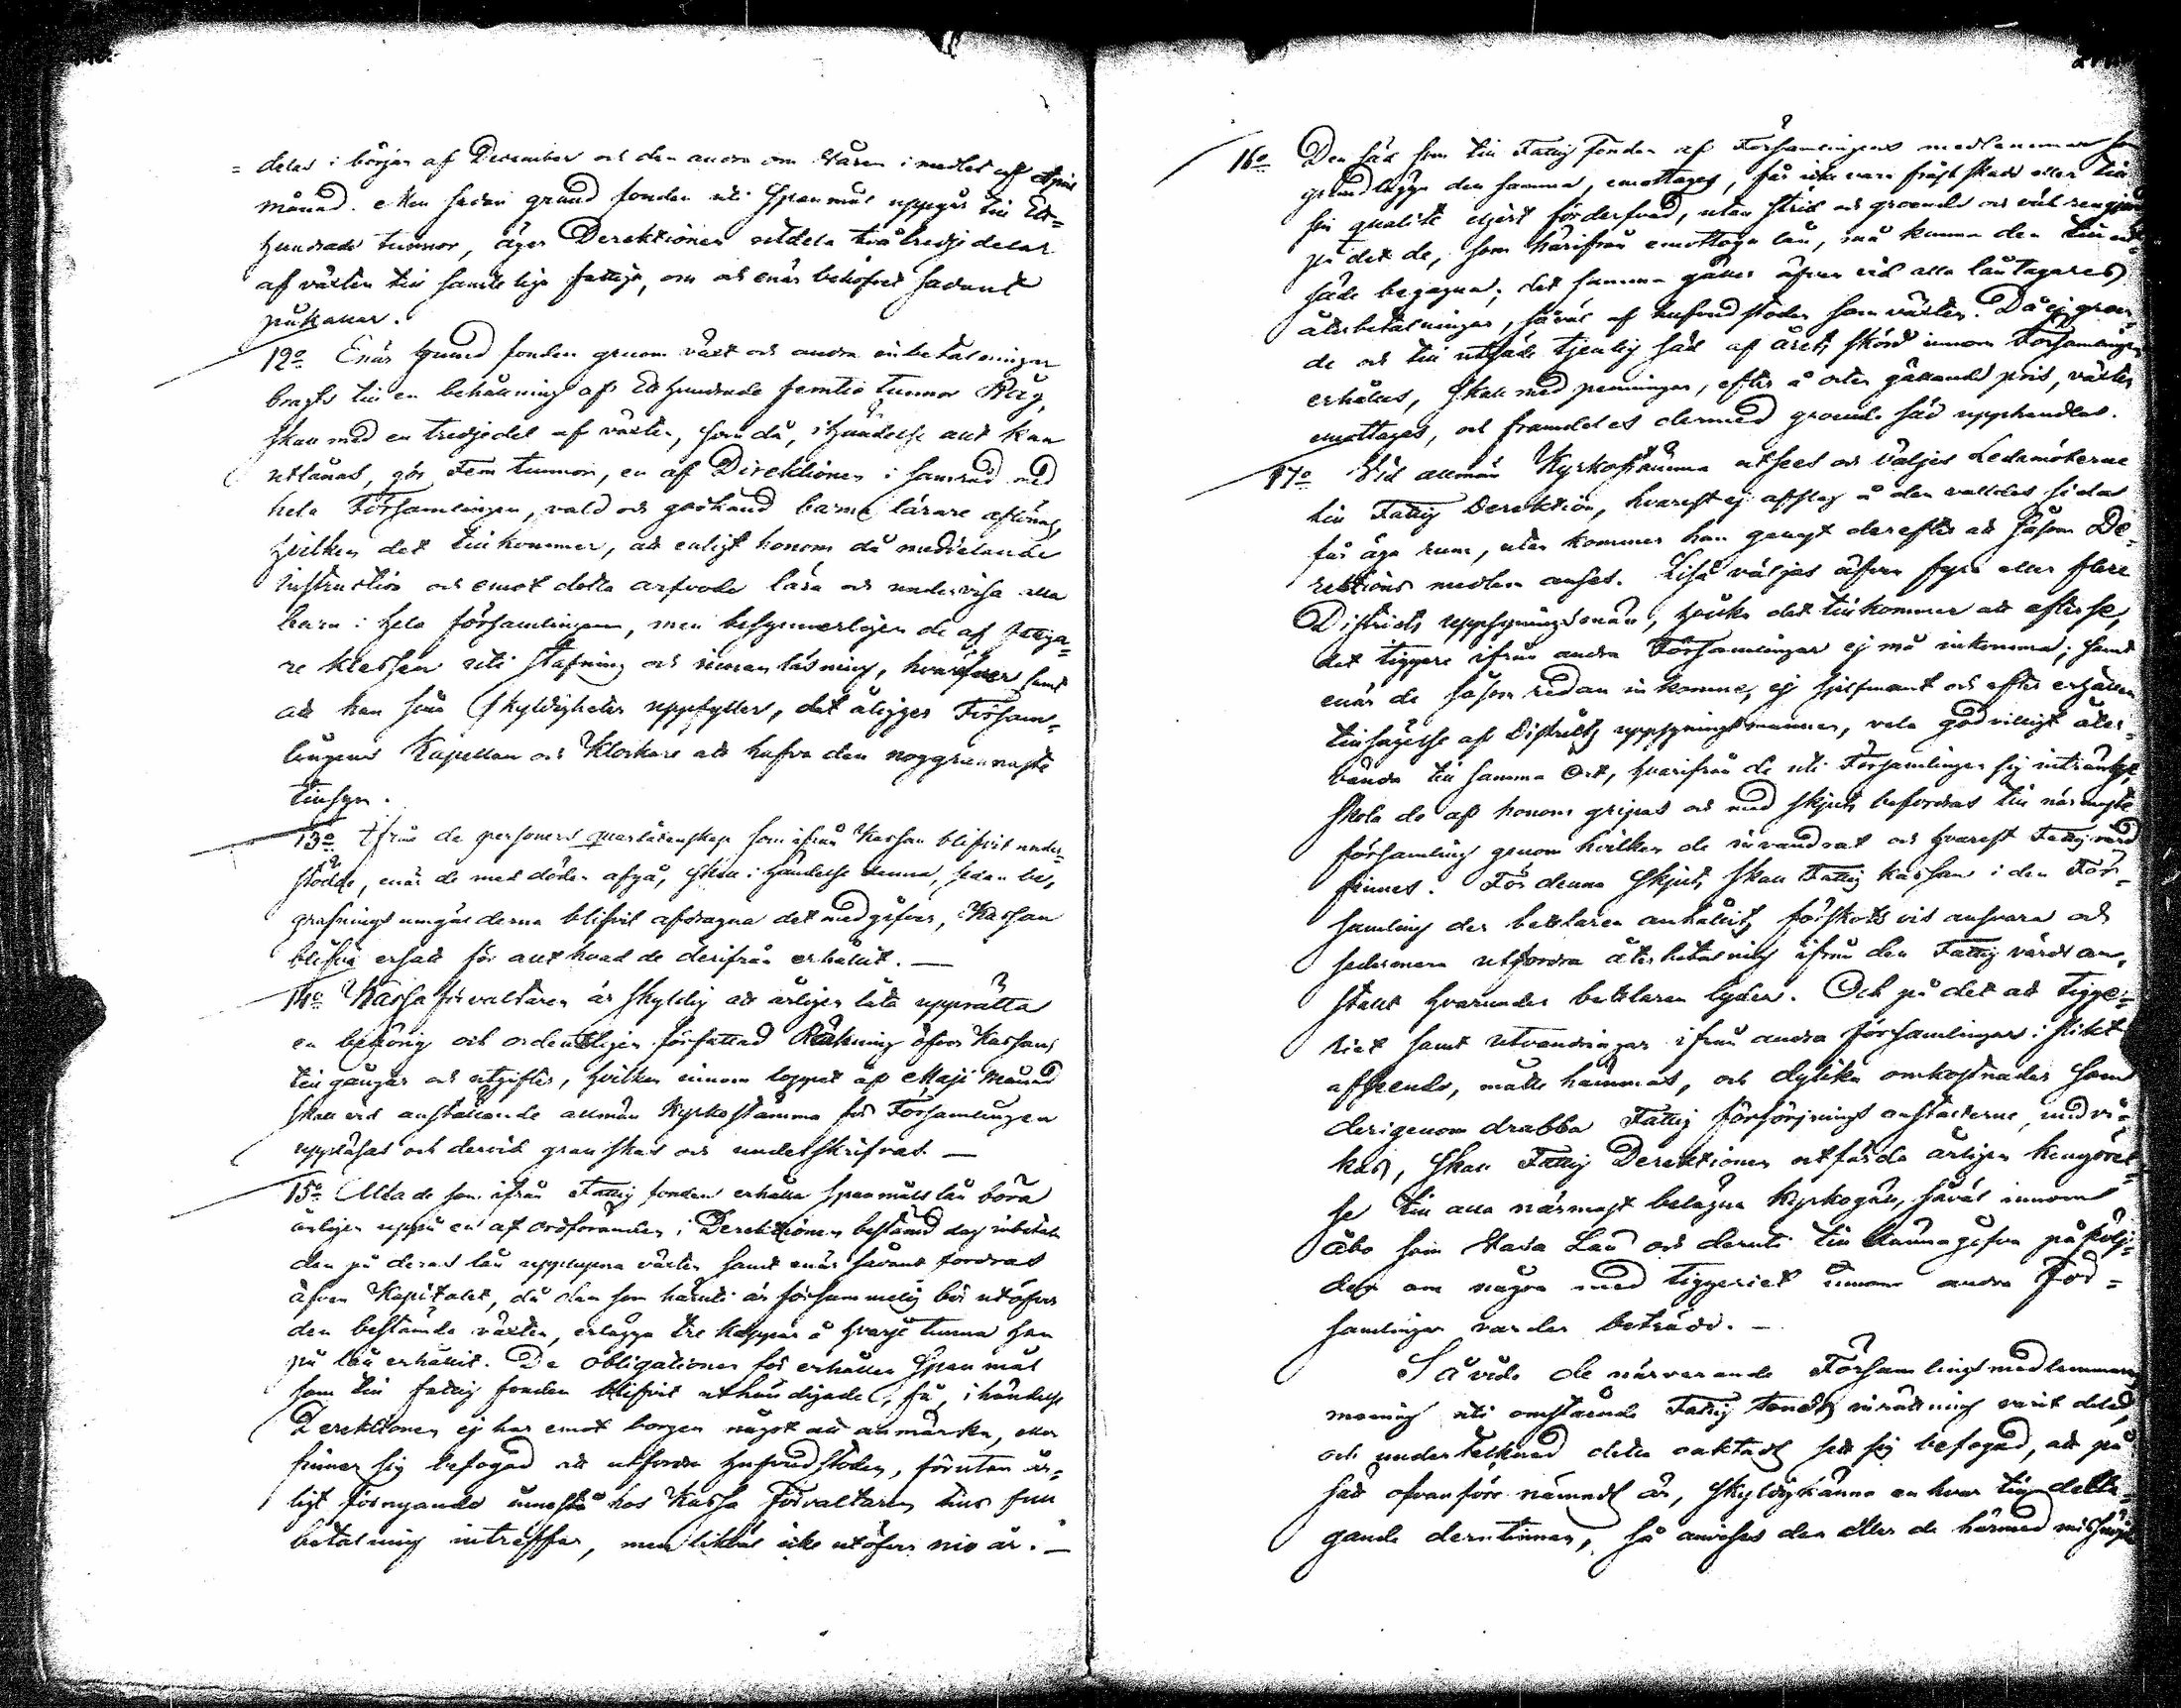 = delas i början af December och den andra om Våren i medlet af April
månad. Men sedan grund fonden uti Spanmål uppgår till Ett=
hundrade tunnor, äger Derektionen utdela två tredjedelar
af växten till samtelige fattiga, om och enär behofvet sådant
påkallar.
12o Enär Grund fonden genom växt och andra inbetalningar
bragts till en behållning af Etthundrade femtio tunnor Råg,
skall med en tredjedel af växten, som då, i händelse allt kan
utlånas, gör Fem tunnor, en af Direktionen i samråd med
hela Församlingen, vald och godkänd barna lärare aflönas,
hvilken det tillkommer, att enligt honom då meddelande
instruction och emot detta arfvode lära och undervisa alla
barn i hela församlingen, men besynnerligen de af fattiga=
re klassen uti stafning och innan läsning, hvaröfver samt
att han sina skyldigheter uppfyller, det åligger Försam=
lingens Kapellan och Klockare att hafva den noggrannaste
tillsyn.
13o Ifrån de personers quarlåtenskap som ifrån Kassan blifvit under=
stödde, enär de med döden afgå, skall i händelse denna, sedan be=
grafnings umgälderna blifvit afdragna det medgifver, Kassan
blifva ersatt för allt hvad de derifrån erhållit. —
14o Kassaförvaltaren är skyldig att årligen låta upprätta
en behörig och ordentligen författad Räkning öfver Kassans
tillgångar och utgifter, hvilken innom loppet af Maji Månad
skall vid anställande allmän Kyrkostämma för Församlingen
uppläsas och dervid granskas och underskrifvas. —
15o Alla de som ifrån Fattig fonden erhålla spanmåls lån böra
årligen uppå en af ordföranden i Derektionen bestämd dag inbetala
den på deras lån upplupna växten samt enär sådant fordras
äfven Kapitalet, då den som häruti är försummelig bör utöfver
den bestämda växten, erlägga tre kappar å hvarje tunna han
på lån erhållit. De obligationer för erhållen Spanmål
som till fattig fonden blifvit uthändigade, få, i händelse
Derektionen ej har emot borgen något att anmärka, eller
finner sig befogad att utfordra hufvudstolen, förutan år=
ligt förnyande innestå hos Kassa Förvaltaren tills full
betalning inträffar, men likväl icke utöfver nio år. —
16o Den säd som till Fattig fonden af Församlingens medlemmar för
grundlägga den samma, emottages, får icke vara frost skadd eller till
sin qualité eljest förderfvad, utan strid och groende och väl rengjord
på det de, som härifrån emottaga lån, må kunna den till ut=
säde begagna; det samma gäller äfven vid alla låntagares
återbetalningar, såväl af hufvudstolen som växten. Då ej groen=
de och till utsäde tjenlig säd af årets skörd innom Församlingen
erhålles, skall med penningar, efter å orten gällande pris, växten
emottages, och framdeles dermed groende säd upphandlas.
17o Vid allmän Kyrkostämma utses och väljes Ledamöterne
till Fattig Derektion, hvarest ej afslag å den valldes sida
får äga rum, utan kommer han genast derefter att såsom De=
rektions medlem anses. Liså väljes äfven fyra eller flere
Districts uppsyningsmän, hvilka det tillkommer att efterse,
det tiggare ifrån andra Församlingar ej må inkomma; samt
enär de såsom redan inkomne, ej sjelfmant och efter erhållen
tillsägelse af Districts uppsyningsmannen, vela godvilligt åter=
vända till samma Ort, hvarifrån de uti Församlingen sig inträngt,
skola de af honom gripas och med skjuts befordras till närmaste
församling genom hvilken de invandrat och hvarest Fattigvård
finnes. För denna Skjuts skall Fattig Kassan i den För=
samling der betlaren anhållits förskotts vis ansvara och
sedermera utfordra återbetalning ifrån den Fattig vårds an=
stalt hvarunder betlaren lyder. Och på det att Tigge=
riet samt utvandringar ifrån andra församlingar i slikt
afseende, måtte hämmas, och dylika omkostnader som
derigenom drabba Fattig försörjnings anstalterne, undvi=
kas, skall Fattig Derektionen utfärda årligen kungörel=
se till alla närmast belägna Kyrkogäll, såväl innom
Åbo som Vasa Län och deruti till känna gifva påfölj=
den om någon med tiggeriet innom andra För=
samlingar varder beträdd. —
Såvida de närvarande Församlingsmedlemmars
mening uti omstående Fattig Fonds inrättning varit delad,
och undertecknad detta oaktadt sett sig befogad, att på
sätt ofvanföre nämndt är, skyldigkänna en hvar till delta=
gande deruti, så anvises den eller de härmed missnöjde